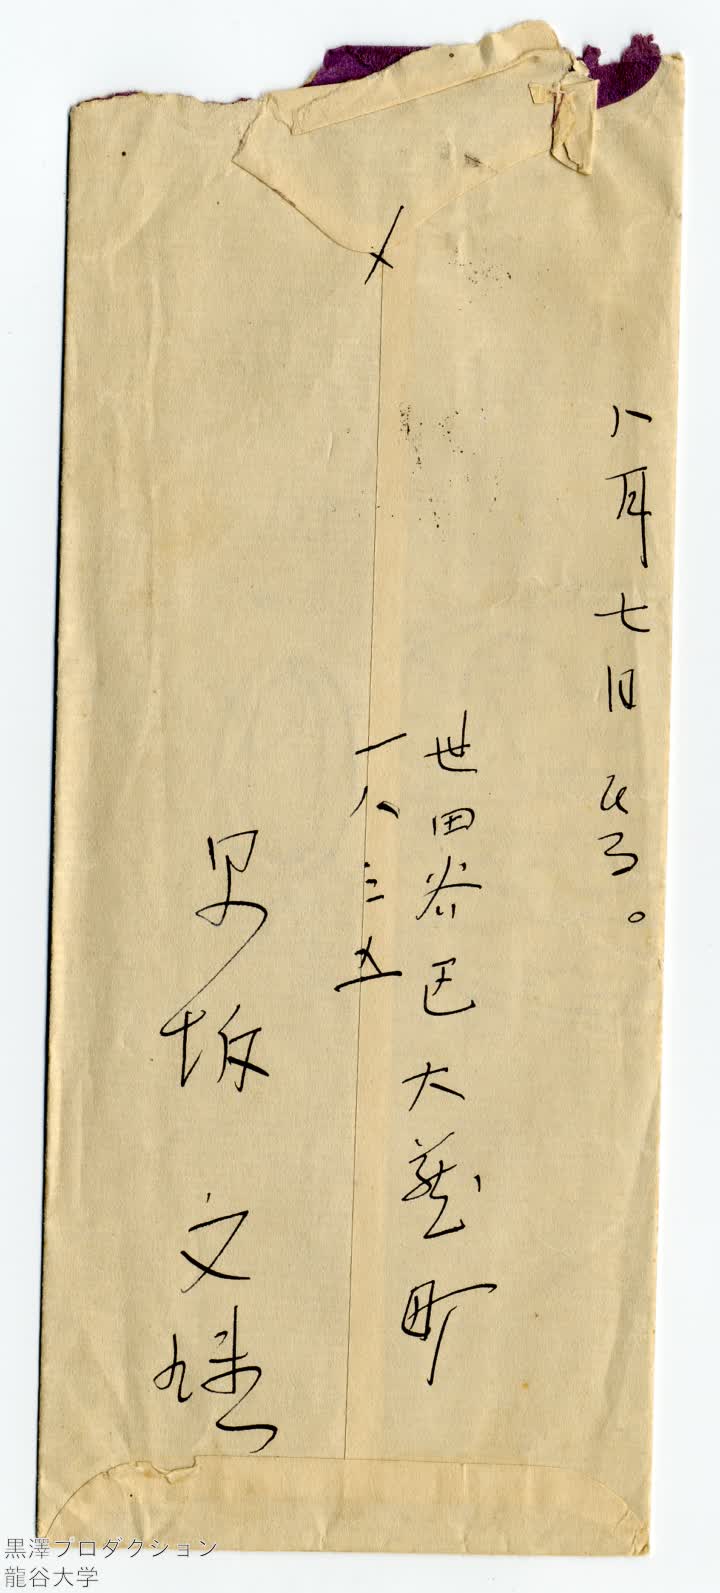 〆
八月七日
世田谷区大蔵町
一八三五
早坂 文雄
黒澤プロダクション
龍谷大学